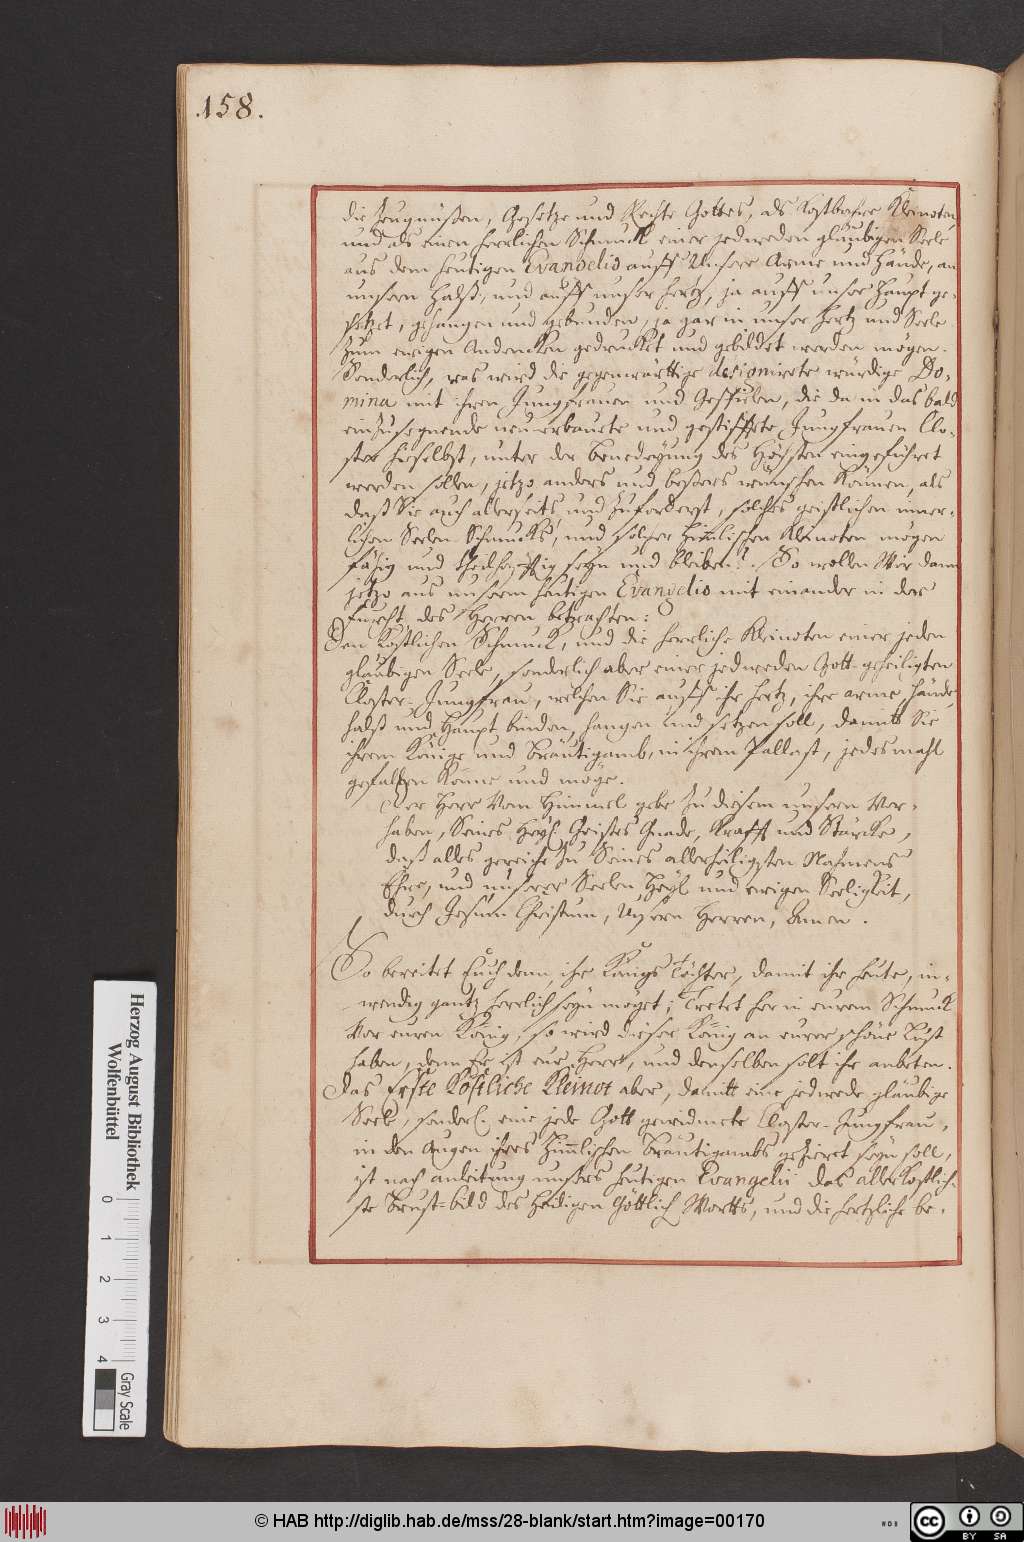 .158.
die Zeugnüßen, Gesetze und Rechte Gottes, als kostbahre Kleinoten,
und als einen herrlichen Schmuck einer jedweden gläubigen Seele
aus dem heutigen Evangelio auff Unsere Arme und Hände, an
unsern Halß, und auff unser Hertz, ja auff unser Haupt ge-
setzet, gehangen und gebunden, ja gar in unser Hertz und Seele
zum ewigen Andencken gedrucket und gebildet werden mögen.
Sonderlich, was wird die gegenwärttige designirete würdige Do-
mina mit ihren Jungfrauen und Gespielen, die da in das bald
einzusegnende neu-erbauete und gestifftete Jungfrauen Clo-
ster hieselbst, unter der Benedeyung des Höchsten eingeführet
werden sollen, jetzo anders und beßers wünschen können, als
daß Sie auch allerseits und zuforderst, solches geistlichen inner-
lichen Seelen Schmucks, und solcher Himlischen Kleinoten mögen
fähig und theilhafftig seyn und bleiben? So wollen Wir dann
jetzo aus unserm heutigen Evangelio mit einander in der
Furcht des Herren betrachten:
Den köstlichen Schmuck, und die herrliche Kleinoten einer jeden
gläubigen Seele, sonderlich aber einer jedweden Gott-geheiligten
Closter-Jungfrau, welchen Sie auff ihr Hertz, ihre arme Hände
Halß und Haupt binden, hangen und setzen soll, damitt Sie
ihrem Könige und Bräutigamb, in ihrem Pallast, jedesmahl
gefallen könne und möge.
Der Herr vom Himmel gebe zu diesem unsern Vor-
haben, Seines Heyl. Geistes Gnade, Krafft und Stärcke,
daß alles gereiche zu Seines allerheiligsten Nahmens
Ehre, und unserer Seelen Heyl und ewigen Seeligkeit,
durch Jesum Christum, Unsern Herren, Amen.
So bereitet Euch denn, ihr Königs Töchter, damit ihr heute, in-
wendig gantz herrlich seyn möget; Tretet her in eurem Schmuck
vor euren König, so wird dieser König an eurer schöne Lust
haben, denn Er ist eur Herr, und denselben solt ihr anbeten.
Das Erste Köstliche Kleinot aber, damitt eine jedwede gläubige
Seele, sonderl. eine jede Gott gewidmete Closter-Jungfrau,
in den Augen ihres Himlischen Bräutigambs gezieret seyn soll,
ist nach anleitung unsers heutigen Evangelii das allerköstlich-
ste Brust-bild des Heiligen Göttlich. Wortts, und die hertzliche be-
Herzog August Bibliothek
Wolfenbüttel
0 1 2 3 4
Gray Scale
© HAB http://diglib.hab.de/mss/28-blank/start.htm?image=00170
WDB
cc BY SA